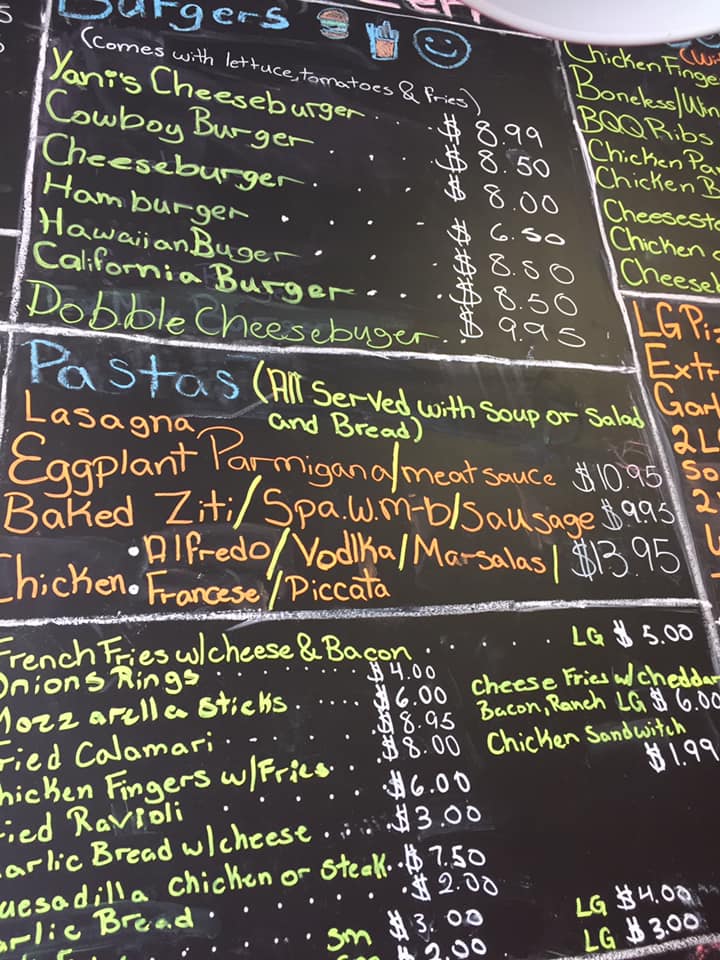 Burgers
(Comes with lettuce, tomatoes & fries)
Yani's Cheeseburger . . $ 8.99
Cowboy Burger . . . . $ 8.50
Cheeseburger . . . $ 8.00
Hamburger . . . . $ 6.50
Hawaiian Buger . . . $ 8.50
California Burger . . . $ 8.50
Dobble Cheesebuger . $ 9.95
Chicken
Boneless/
BQQ Ribs
Chicken
Chicken
Chicken
LG
2
Pastas (All Served with Soup or Salad
and Bread)
Lasagna
Eggplant Parmigana/meat sauce $10.95
Baked Ziti/Spa.w.m-b/Sausage $9.95
Chicken • Alfredo/Vodka/Marsalas/ $13.95
• Francese/Piccata
French Fries w/cheese & Bacon . . . . LG $ 5.00
Onions Rings . . . . . $4.00
Mozzarella Sticks . . . . $6.00
Fried Calamari . . . . $8.95
Chicken Fingers w/Fries . . $8.00
Fried Ravioli . . . . $6.00
Garlic Bread w/cheese . . . . $3.00
Quesadilla Chicken or Steak . . $7.50
Garlic Bread . . . . $2.00
sm $3.00
2.00
Cheese Fries w/cheddar
Bacon, Ranch LG $ 6.00
Chicken Sandwitch
$1.99
LG $4.00
LG $3.00